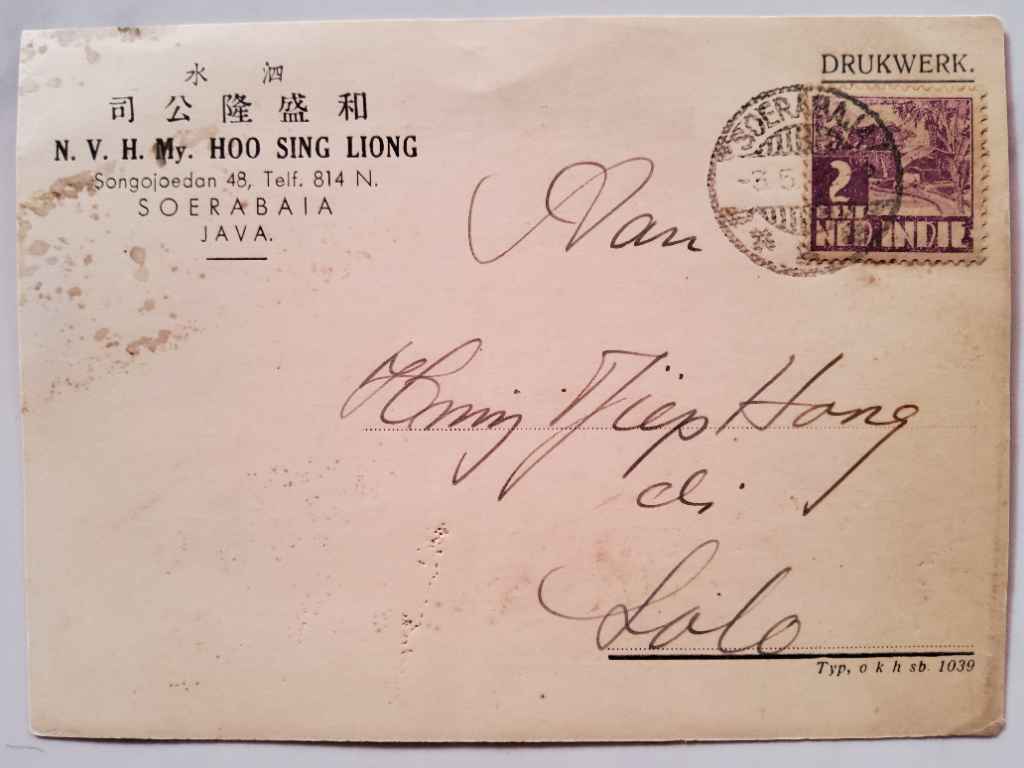 水 泗
司公隆盛和
N. V. H. My. HOO SING LIONG
Songojoedan 48, Telf. 814 N.
SOERABAIA
JAVA.
DRUKWERK.
SOERABAJA
-3.5
2
CENT
NED INDIE
Van
Tjiep Hong
di
Solo
Typ, o k h sb. 1039